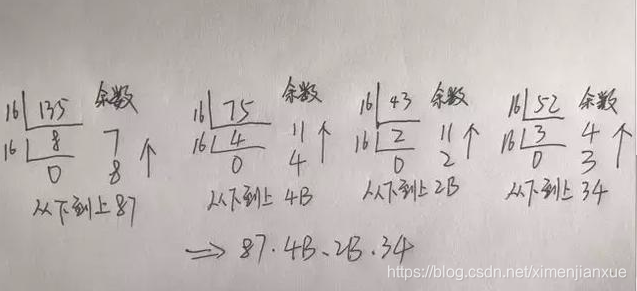 16 135 余数
16 8 7
0 8
从下到上 87
16 75 余数
16 4 11
0 4
从下到上 4B
16 43 余数
16 2 11
0 2
从下到上 2B
16 52 余数
16 3 4
0 3
从下到上 34
⇒ 87.4B.2B.34
https://blog.csdn.net/ximenjianxue